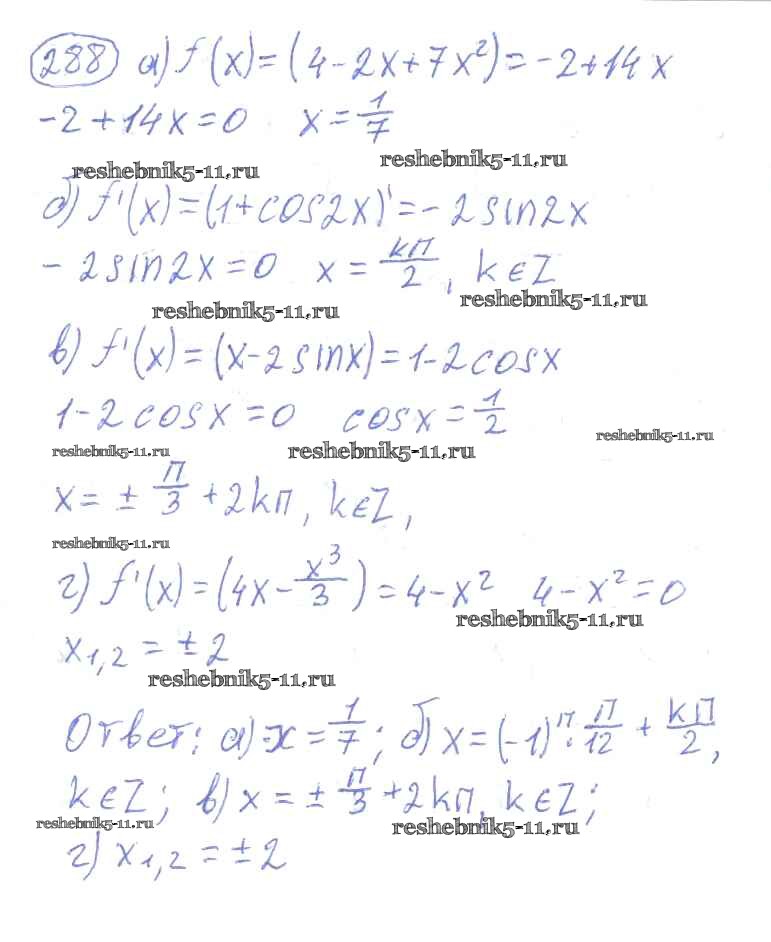 288 а) f(x) = (4-2x+7x²) = -2+14x
-2+14x=0 x=1/7
reshebnik5-11.ru reshebnik5-11.ru
б) f'(x) = (1+cos2x)' = -2sin2x
-2sin2x=0 x = kП/2, k∈Z
reshebnik5-11.ru reshebnik5-11.ru
в) f'(x) = (x-2sinx) = 1-2cosx
1-2cosx=0 cosx=1/2
reshebnik5-11.ru reshebnik5-11.ru reshebnik5-11.ru
x = ± П/3 + 2kП, k∈Z,
reshebnik5-11.ru
г) f'(x) = (4x - x³/3) = 4-x² 4-x²=0
reshebnik5-11.ru
x₁,₂ = ±2
reshebnik5-11.ru
Ответ: а) x = 1/7; б) x = (-1)ᴨ · П/12 + kП/2,
k∈Z; в) x = ± П/3 + 2kП, k∈Z;
reshebnik5-11.ru reshebnik5-11.ru
г) x₁,₂ = ±2